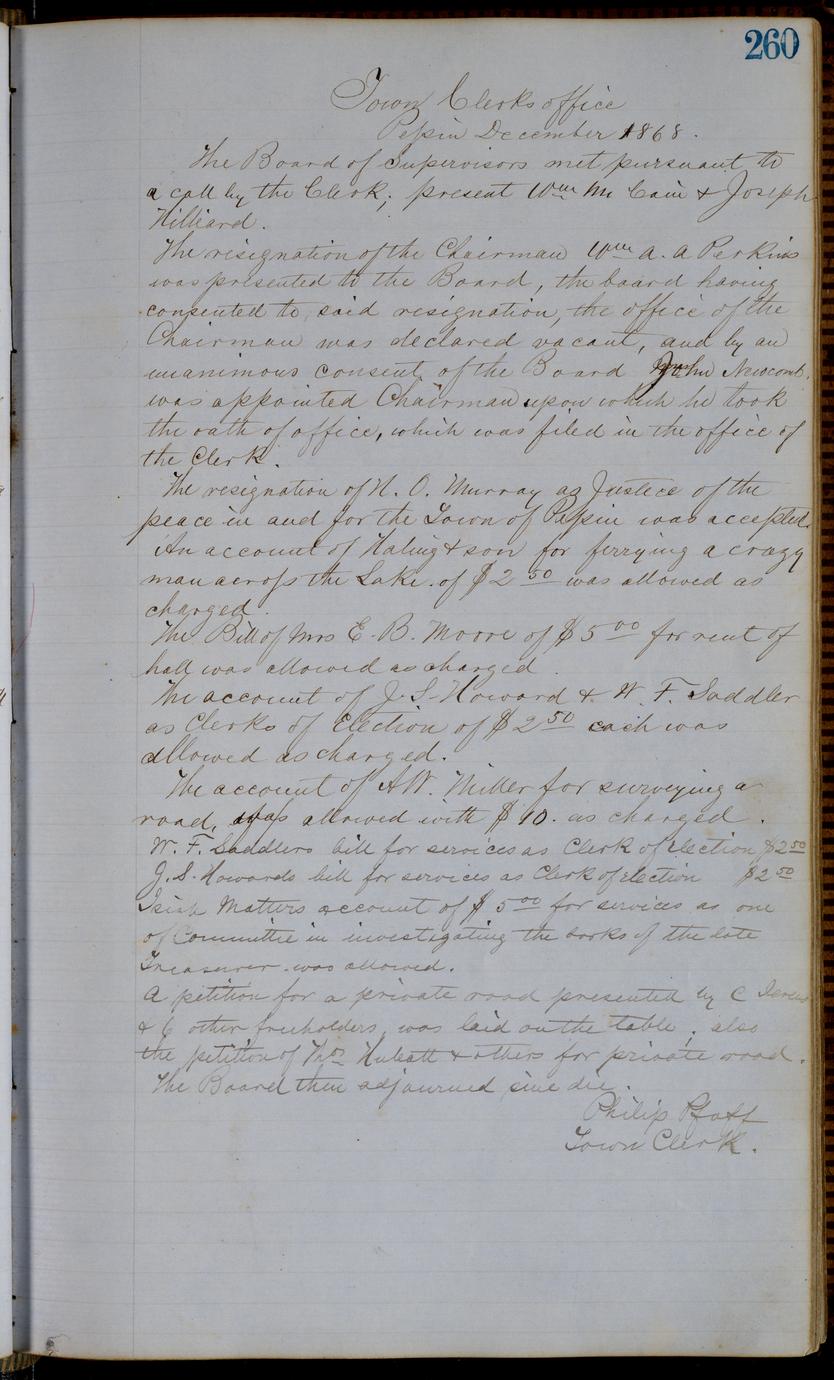 260
Town Clerks office
Pepin December 1868.
The Board of Supervisors met pursuant to
a call by the Clerk; present Wm Mc Cain & Joseph
Hilliard.
The resignation of the Chairman Wm A. A Perkins
was presented to the Board, the board having
consented to said resignation, the office of the
Chairman was declared vacant, and by an
unanimous consent of the Board John Newcomb.
was appointed Chairman upon which he took
the oath of office, which was filed in the office of
the Clerk.
The resignation of N. O. Murray as Justice of the
peace in and for the Town of Pepin was accepted.
An account of & son for ferrying a crazy
man across the Lake of $2 50 was allowed as
charged.
The Bill of Mrs E. B. Moore of $5 00 for rent of
hall was allowed as charged
The account of J. S. Howard & W. F. Saddler
as Clerks of Election of $2 50 each was
allowed as charged.
The account of A W. Miller for surveying a
road, was allowed with $10. as charged.
W. F. Saddlers bill for services as Clerk of election $2 50
J. S. Howards bill for services as Clerk of election $2 50
Matters account of $5 00 for services as one
of Committee in investigating the books of the late
Treasurer was allowed.
A petition for a private road presented by C
& 6 other freeholders, was laid on the table; also
the petition of Thos & others for private road.
The Board then adjourned sine die.
Philip Pfaff
Town Clerk.